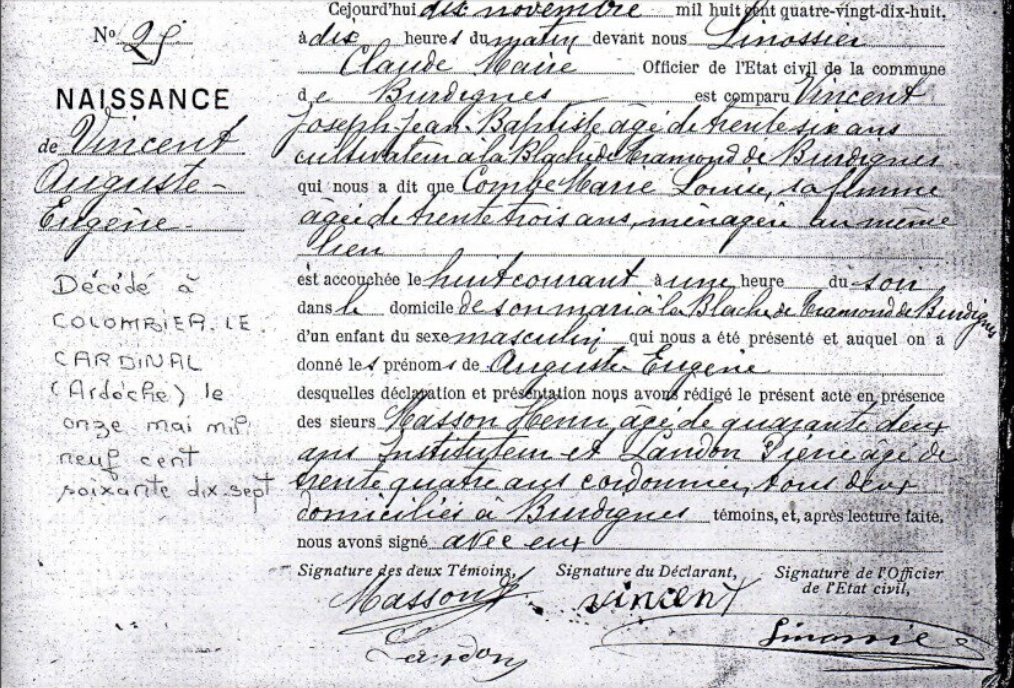 Nº 25
NAISSANCE
de Vincent
Auguste-
Eugène.
Décédé à
COLOMBIER. LE.
CARDINAL
(Ardèche) le
onze mai mil
neuf cent
soixante dix. sept
Cejourd'hui dix novembre mil huit cent quatre-vingt-dix-huit,
à dix heures du matin devant nous Linossier
Claude Maire Officier de l'Etat civil de la commune
de Burdignes est comparu Vincent
Joseph Jean-Baptiste âgé de trente six ans
cultivateur à la Blache de Tramond de Burdignes
qui nous a dit que Combe Marie Louise, sa femme
âgée de trente trois ans, ménagère au même
lieu
est accouchée le huit courant à une heure du soir
dans le domicile de son mari à la Blache de Tramond de Burdignes
d'un enfant du sexe masculin qui nous a été présenté et auquel on a
donné les prénoms de Auguste-Eugène
desquelles déclaration et présentation nous avons rédigé le présent acte en présence
des sieurs Masson Henri, âgé de quarante deux
ans Instituteur et Landon Pierre âgé de
trente quatre ans cordonnier, tous deux
domiciliés à Burdignes témoins, et, après lecture faite,
nous avons signé avec eux
Signature des deux Témoins, Signature du Déclarant, Signature de l'Officier
de l'Etat civil,
Masson Vincent Linossier
Landon